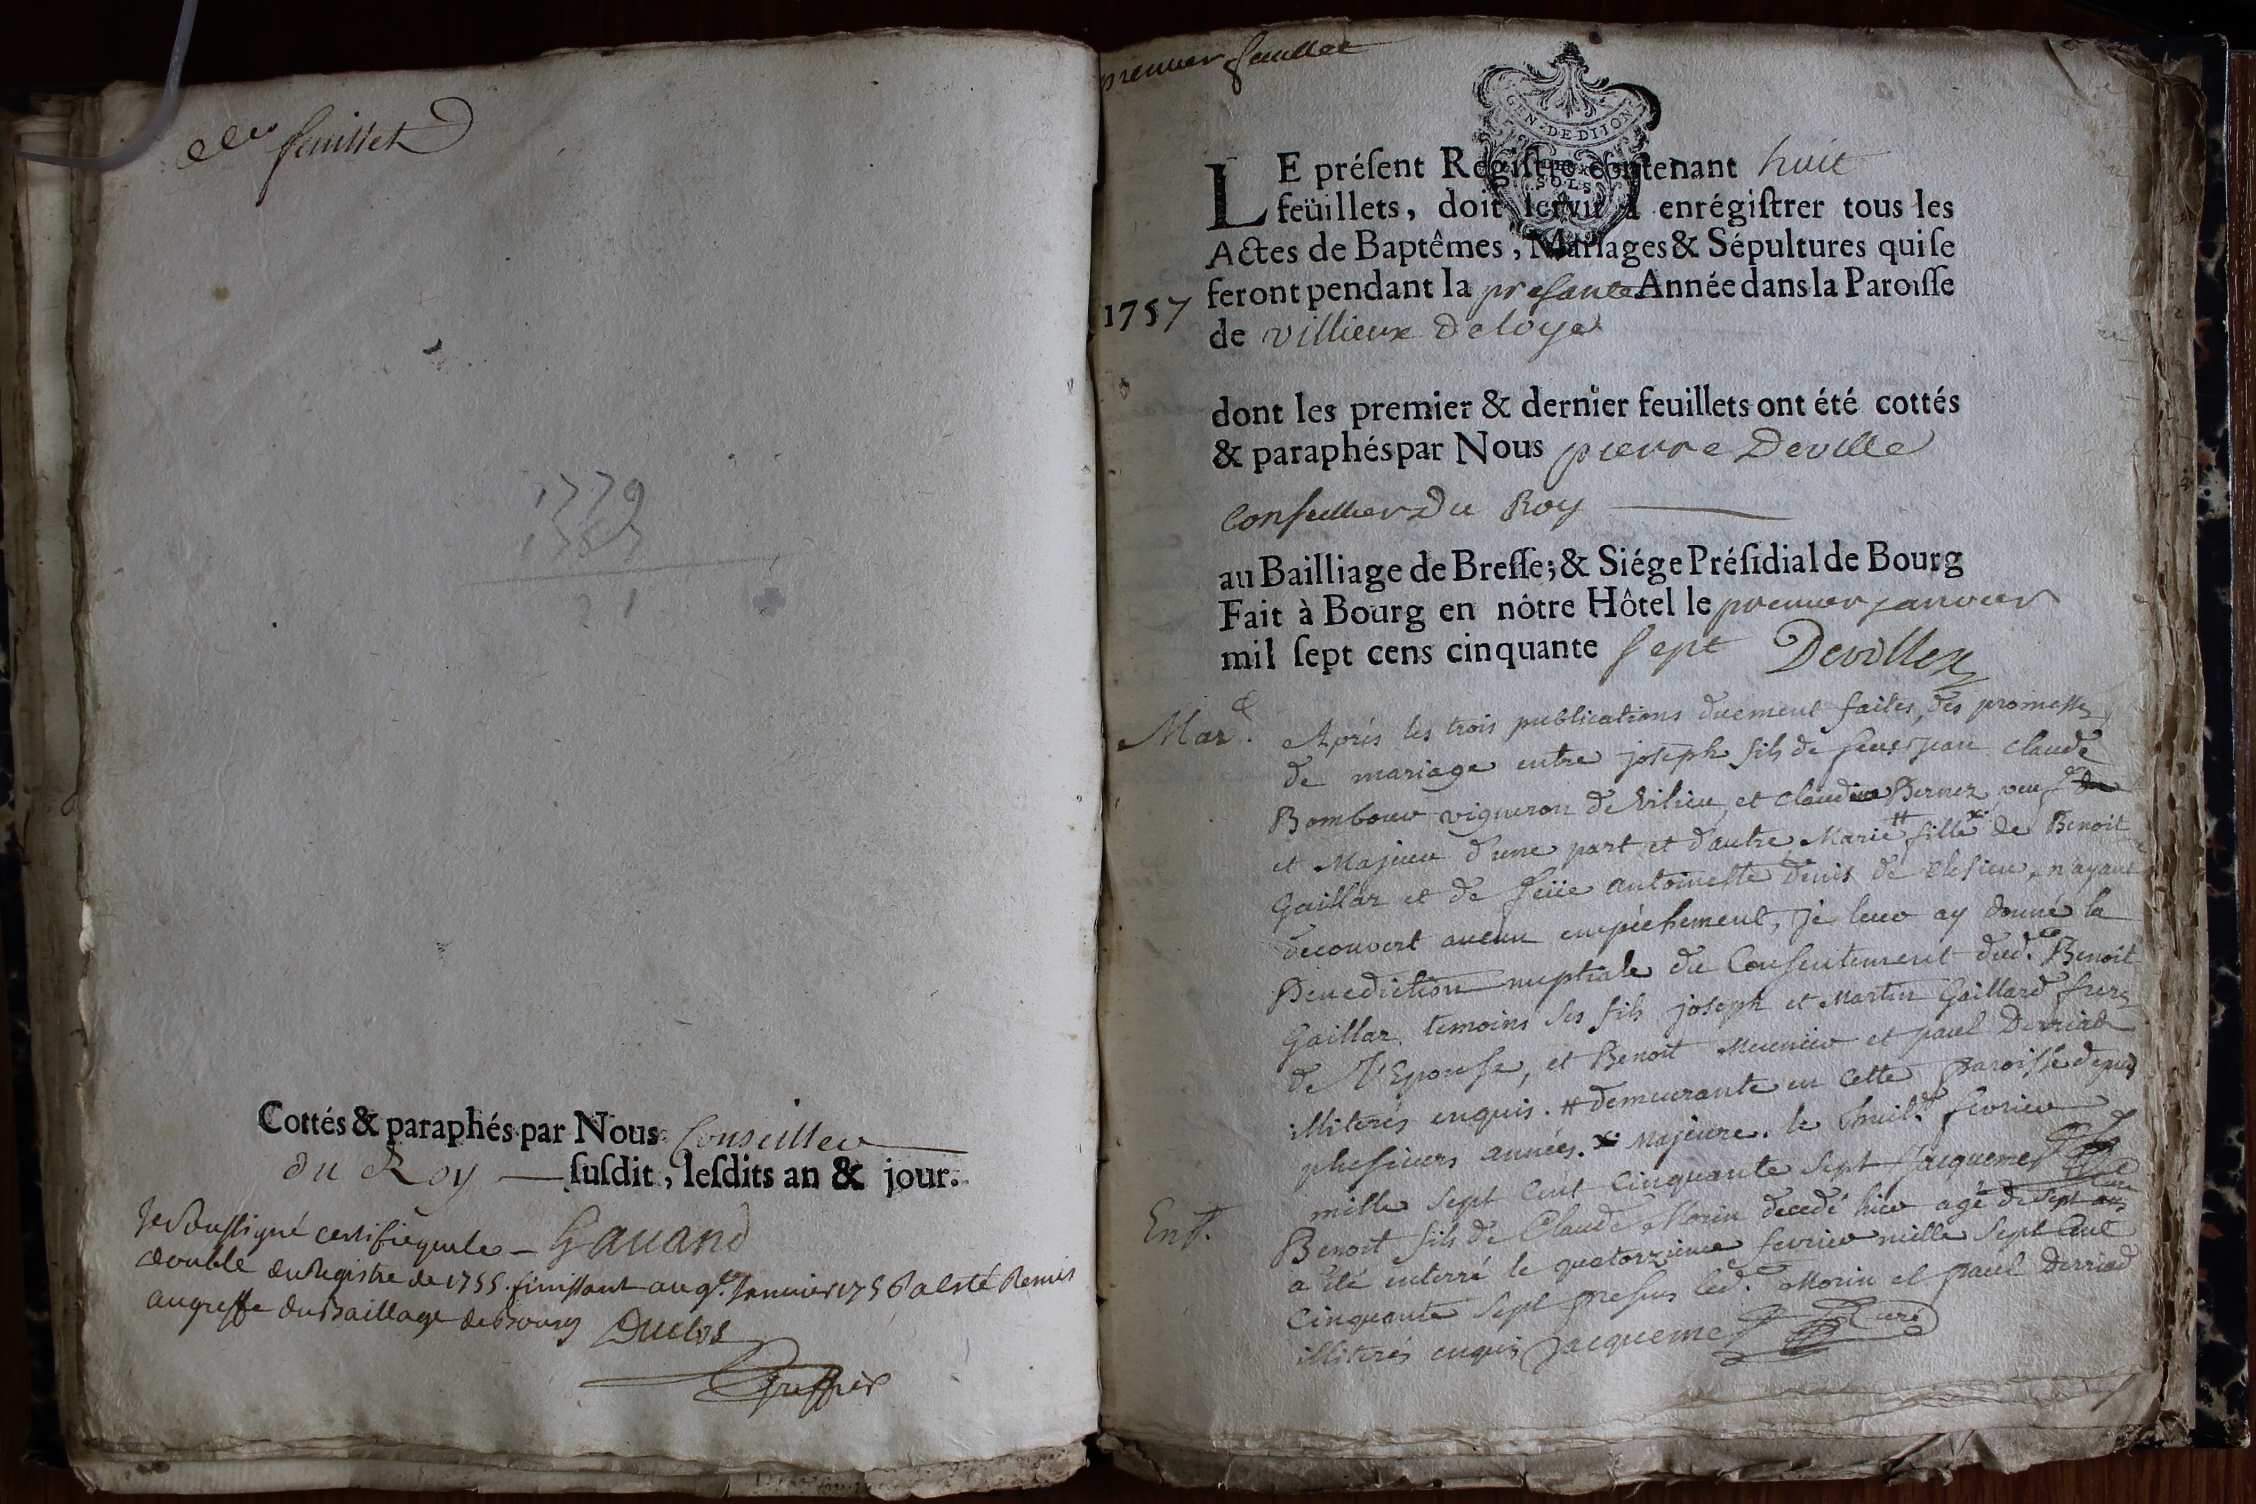 feuillet
1779
21
Cottés & paraphés par Nous Conseiller
du Roy — ſuſdit, leſdits an & jour.
Je soussigné certifie que le — Gauand
double du Registre de 1755. finissant au 9e. Janvier 1756 a esté Remis
au greffe du Baillage de Bourg Duclos
Greffier
premier feuillet
GEN · DE DIJON
SOLS
LE préſent Regiſtre contenant huit
feüillets, doit ſervir à enrégiſtrer tous les
Actes de Baptêmes, Mariages & Sépultures qui ſe
1757 feront pendant la presante Année dans la Paroiſſe
de villieux Deloye
dont les premier & dernier feuillets ont été cottés
& paraphés par Nous pierre Deville
Conseiller Du Roy
au Bailliage de Breſſe; & Siége Préſidial de Bourg
Fait à Bourg en nôtre Hôtel le premier janvier
mil ſept cens cinquante sept Deville
Mar.e Aprés les trois publications duement faites, des promesses
de mariage entre joseph fils de feu jean claude
Bombour vigneron de Vilieu, et claudine Pernez veuf
et Majeur d'une part et d'autre Marie # fille x de Benoit
Gaillar et de feüe antoinette Denis de, n'ayant
decouvert aucun empéchement, je leur ay donné la
Benediction nuptiale du Consentement dud. Benoit
Gaillar, temoins ses fils joseph et Martin Gaillard freres
de l'Epouse, et Benoit Meunier et paul Derriad
illiterés enquis. # demeurante en cette paroisse depuis
plusieurs années. x Majeure. le huit.e fevrier
mille sept Cent Cinquante sept Jacquemet Curé
Ent. Benoit fils de Claude Morin decedé hier agé de sept ans
a été enterré le quatorzieme fevrier mille sept Cent
Cinquante sept presens led. Morin et paul Derriad
illiterés enquis Jacquemet Curé